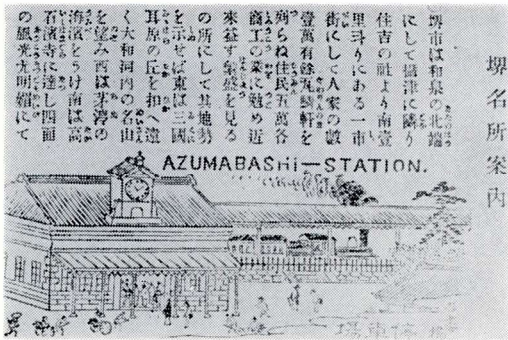 堺名所案内
堺市は和泉の北端
にして攝津に隣り
住吉の社より南壹
里斗りにある一市
街にして人家の數
壹萬有餘瓦鱗軒を
列らね住民五萬各
商工の業に勉め近
來益す繁盛を見る
の所にして其地勢
を示せば東は三國
耳原の丘を扣へ遠
く大和河内の名山
を望み西は茅渟の
海濱をうけ南は高
石濱寺に達し四面
の風光明媚にて
AZUMABASHI-STATION.
停車場